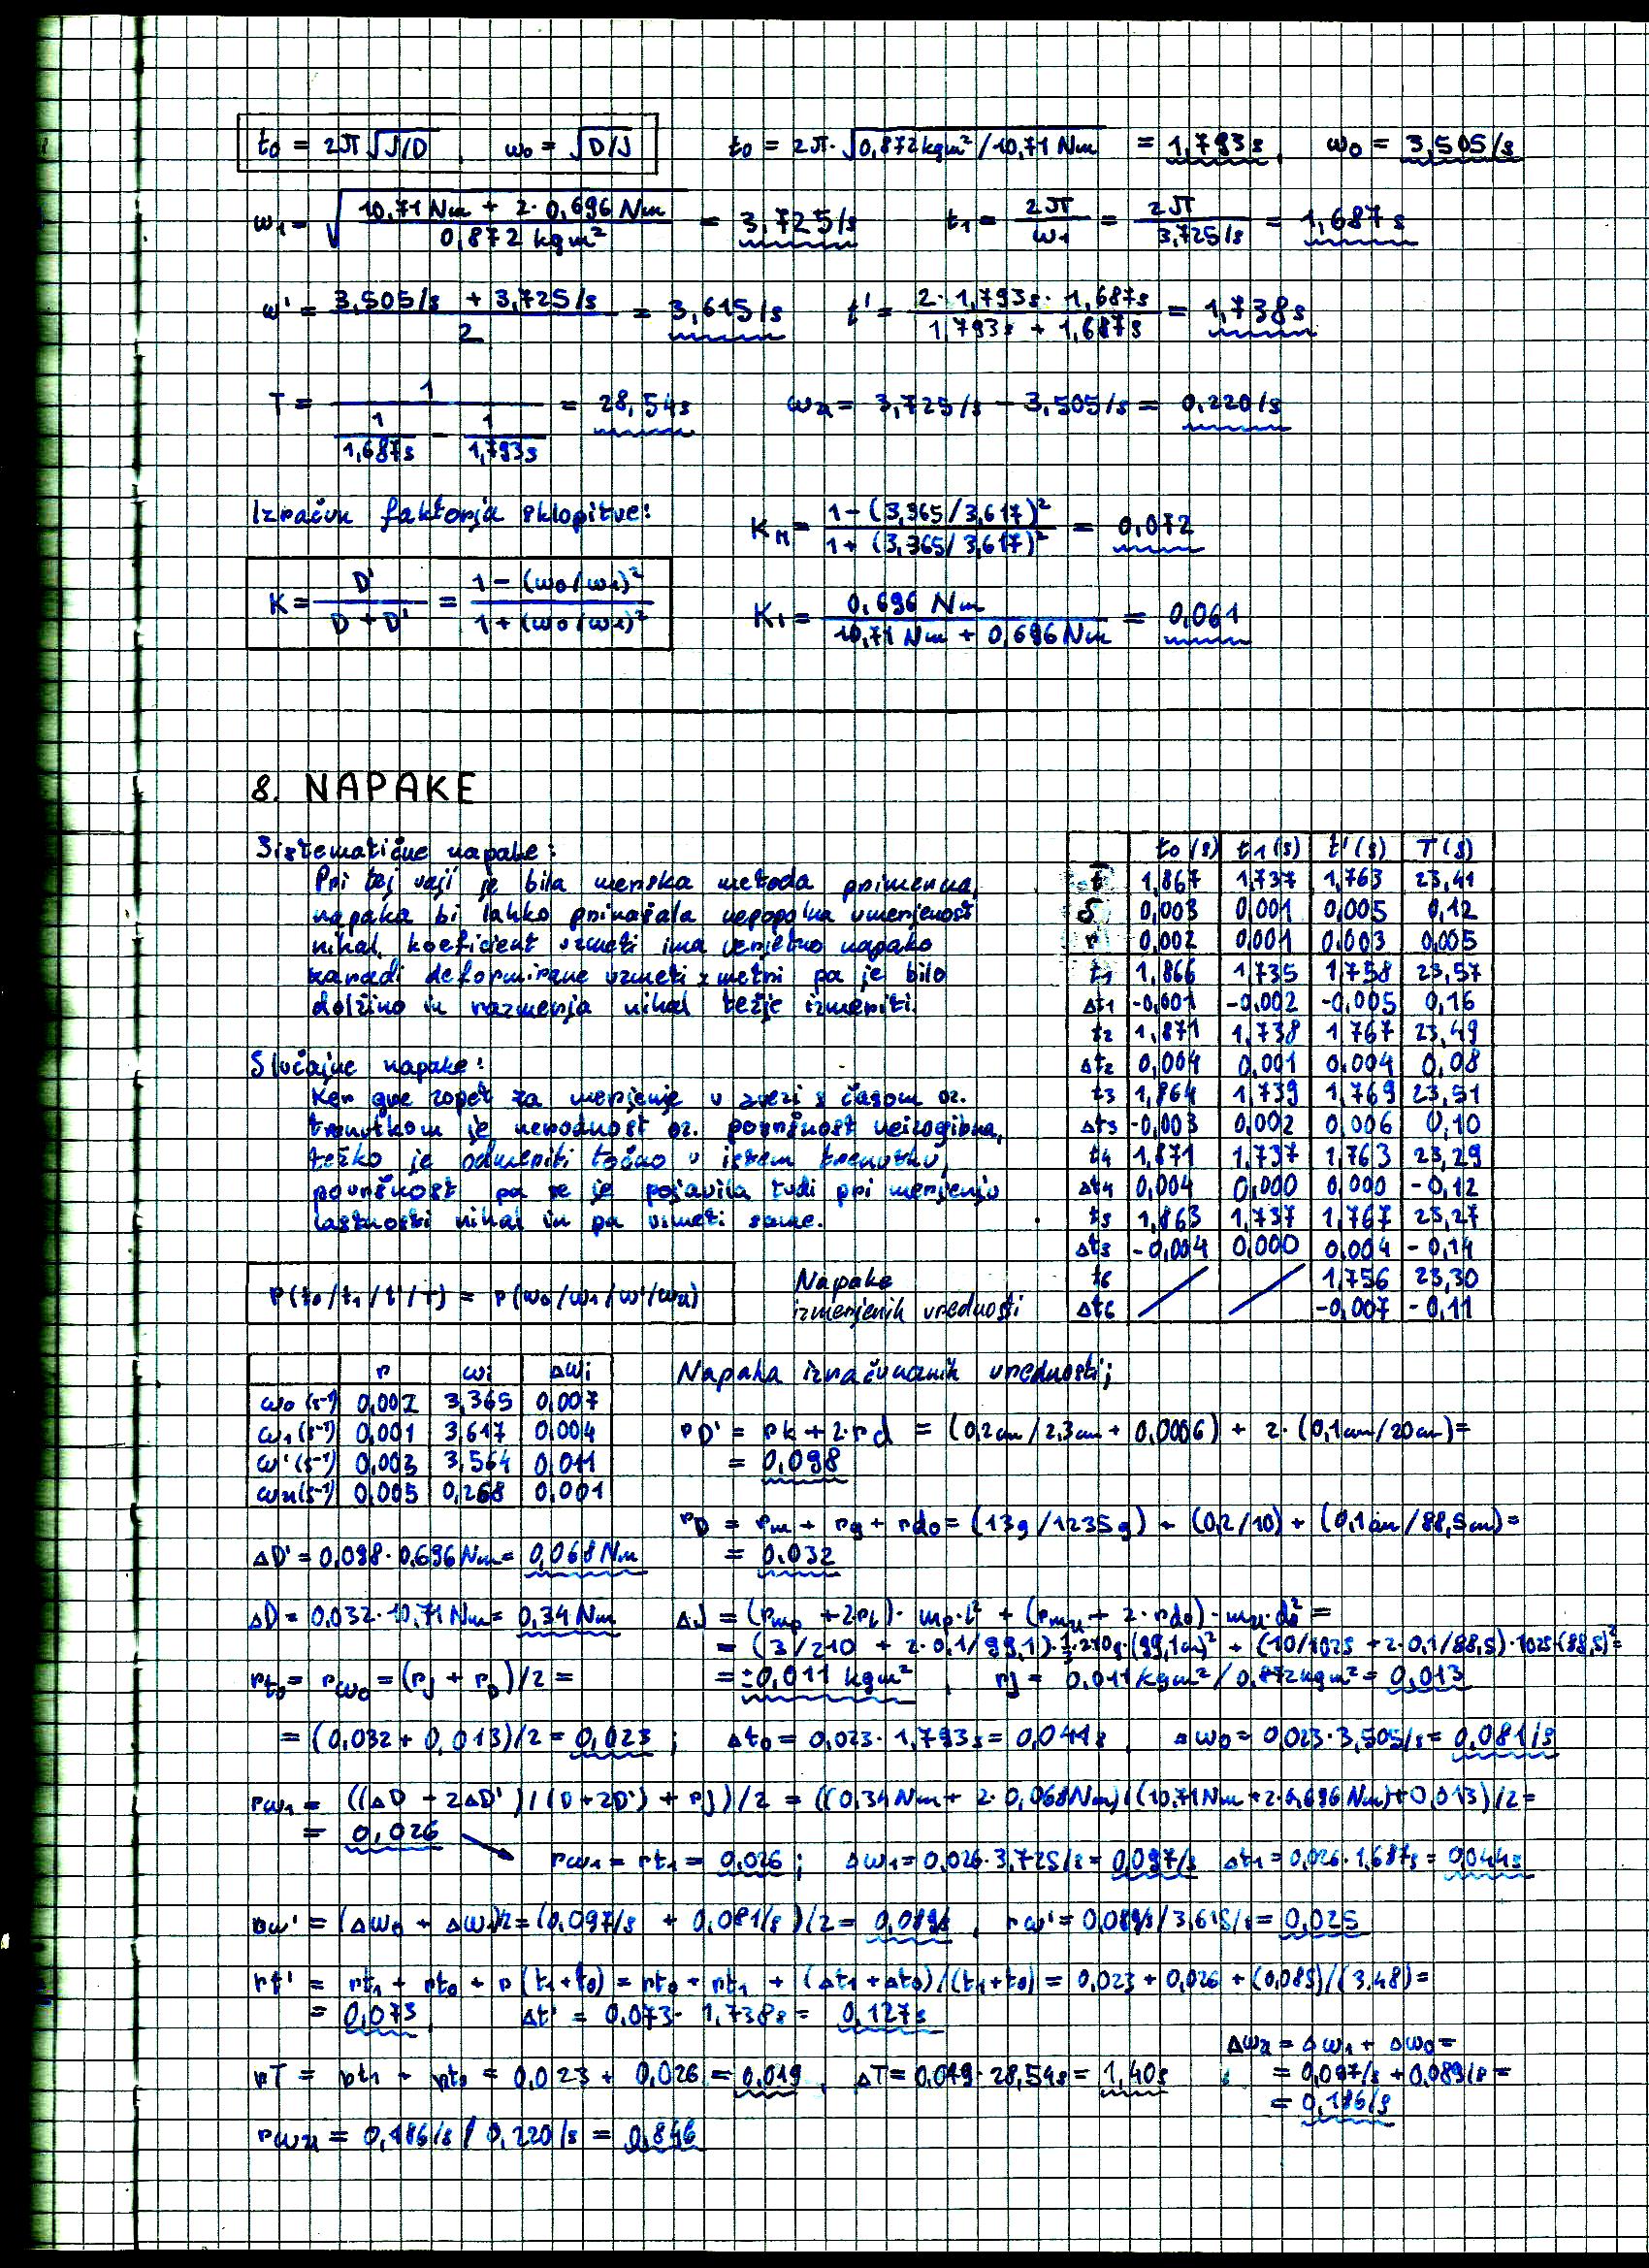 t₀ = 2π√(J/D), ω₀ = √(D/J) t₀ = 2π·√(0,872 kgm²/10,71 Nm) = 1,793s, ω₀ = 3,505/s
ω₁ = √((10,71 Nm + 2·0,696 Nm)/(0,872 kgm²)) = 3,725/s t₁ = 2π/ω₁ = 2π/(3,725/s) = 1,687s
ω' = (3,505/s + 3,725/s)/2 = 3,615/s t' = (2·1,793s·1,687s)/(1,793s + 1,687s) = 1,738s
T = 1/(1/1,687s - 1/1,793s) = 28,54s ωu = 3,725/s - 3,505/s = 0,220/s
Izračun faktorja sklopitve:
K_M = (1-(3,365/3,617)²)/(1+(3,365/3,617)²) = 0,072
K = D'/(D+D') = (1-(ω₀/ω₁)²)/(1+(ω₀/ω₁)²)
K_I = 0,696 Nm/(10,71 Nm + 0,696 Nm) = 0,061
8. NAPAKE
Sistematične napake:
Pri tej vaji je bila merska metoda primerna,
napaka bi lahko prinašala nepopolna umerjenost
nihal, koeficient vzmeti ima verjetno napako
zaradi deformirane vzmeti z metri pa je bilo
dolžino in razmerja nihal težje izmeriti.
Slučajne napake:
Ker gre zopet za merjenje v zvezi s časom oz.
trenutkom je nerodnost oz. površnost neizogibna,
težko je odmeriti točno v istem trenutku,
površnost pa se je pojavila tudi pri merjenju
lastnosti nihal in pa vzmeti same.
t₀(s) t₁(s) t'(s) T(s)
t̄ 1,867 1,737 1,763 23,41
δ 0,003 0,001 0,005 0,12
r 0,002 0,001 0,003 0,005
t₁ 1,866 1,735 1,758 23,57
Δt₁ -0,001 -0,002 -0,005 0,16
t₂ 1,871 1,738 1,767 23,49
Δt₂ 0,004 0,001 0,004 0,08
t₃ 1,864 1,739 1,769 23,51
Δt₃ -0,003 0,002 0,006 0,10
t₄ 1,871 1,737 1,763 23,29
Δt₄ 0,004 0,000 0,000 -0,12
t₅ 1,863 1,737 1,767 23,27
Δt₅ -0,004 0,000 0,004 -0,14
t₆ 1,756 23,30
Δt₆ -0,007 -0,11
r(t₀/t₁/t'/T) = r(ω₀/ω₁/ω'/ωu)
Napake
izmerjenih vrednosti
r ωi Δωi
ω₀(s⁻¹) 0,002 3,365 0,007
ω₁(s⁻¹) 0,001 3,617 0,004
ω'(s⁻¹) 0,003 3,564 0,011
ωu(s⁻¹) 0,005 0,268 0,001
Napaka izračunanih vrednosti;
rD' = rk + 2·rd = (0,2cm/2,3cm + 0,0006) + 2·(0,1cm/20cm) =
= 0,098
rD = rm + rg + rd₀ = (13g/1235g) + (0,2/10) + (0,1cm/88,5cm) =
= 0,032
ΔD' = 0,098·0,696Nm = 0,068Nm
ΔD = 0,032·10,71Nm = 0,34Nm
ΔJ = (r_mp + 2rl)·mp·l² + (r_mu + 2·rd₀)·mu·d₀² =
= (3/210 + 2·0,1/99,1)·⅓·210g·(99,1cm)² + (10/1025 + 2·0,1/88,5)·1025·(88,5)² =
= ±0,011 kgm², rJ = 0,011kgm²/0,872kgm² = 0,013
rt₀ = rω₀ = (rJ + rD)/2 =
= (0,032 + 0,013)/2 = 0,023; Δt₀ = 0,023·1,793s = 0,041s, Δω₀ = 0,023·3,505/s = 0,081/s
rω₁ = ((ΔD + 2ΔD')/(D+2D') + rJ)/2 = ((0,34Nm + 2·0,068Nm)/(10,71Nm + 2·0,696Nm) + 0,013)/2 =
= 0,026
rω₁ = rt₁ = 0,026; Δω₁ = 0,026·3,725/s = 0,097/s Δt₁ = 0,026·1,687s = 0,044s
Δω' = (Δω₀ + Δω₁)/2 = (0,097/s + 0,081/s)/2 = 0,089/s, rω' = 0,089/s/3,615/s = 0,025
rt' = rt₁ + rt₀ + r(t₁+t₀) = rt₀ + rt₁ + (Δt₁+Δt₀)/(t₁+t₀) = 0,023 + 0,026 + (0,085)/(3,48) =
= 0,073, Δt' = 0,073·1,738s = 0,127s
rT = rt₁ + rt₀ = 0,023 + 0,026 = 0,049, ΔT = 0,049·28,54s = 1,40s
Δωu = Δω₁ + Δω₀ =
= 0,097/s + 0,089/s =
= 0,186/s
rωu = 0,186/s / 0,220/s = 0,846